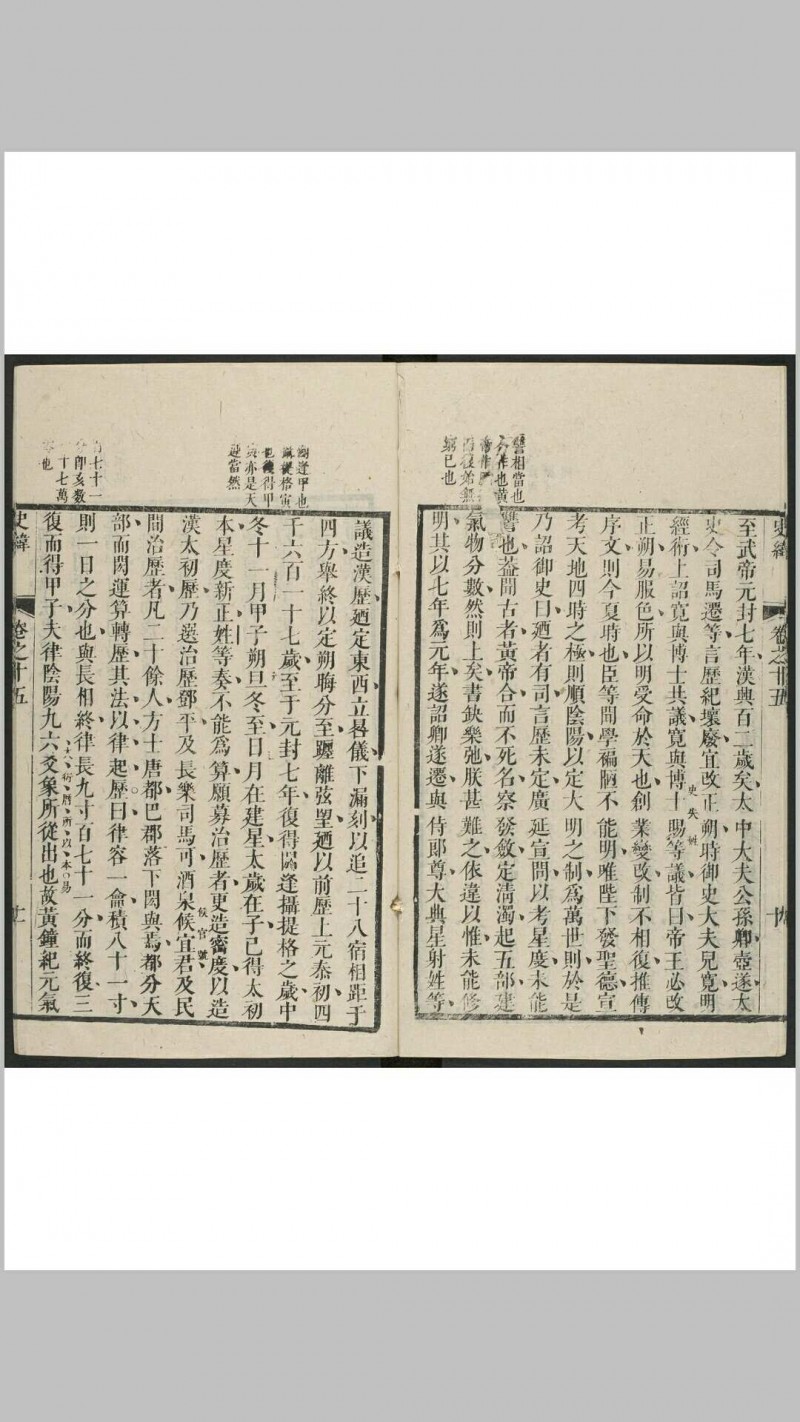 史緯
卷之廿五
讐相當也
合作也黃
帝作歷
而復始無
窮已也
至武帝元封七年漢興百二歲矣太中大夫公孫卿壺遂太
史令司馬遷等言歷紀壞廢宜改正朔時御史大夫兒寬明
經術上詔寬與博士共議寬與博士賜等議皆曰帝王必改
史失姓
正朔易服色所以明受命於天也創業變改制不相復推傳
序文則今夏時也臣等聞學褊陋不能明唯陛下發聖德宣
考天地四時之極則順陰陽以定大明之制爲萬世則於是
乃詔御史曰廼者有司言歷未定廣延宣問以考星度未能
讐也葢聞古者黃帝合而不死名察發斂定淸濁起五部建
氣物分數然則上矣書缺樂弛朕甚難之依違以惟未能修
明其以七年爲元年遂詔卿遂遷與侍郞尊大典星射姓等
閼逢甲也
攝提格寅
也復得甲
寅亦是天
運當然
議造漢歷廼定東西立晷儀下漏刻以追二十八宿相距于
四方舉終以定朔晦分至躔離弦望廼以前歷上元泰初四
千六百一十七歲至于元封七年復得閼逢攝提格之歲中
冬十一月甲子朔旦冬至日月在建星太歲在子已得太初
本星度新正姓等奏不能爲算願募治歷者更造密度以造
候官號
漢太初歷乃選治歷鄧平及長樂司馬可酒泉候宜君及民
間治歷者凡二十餘人方士唐都巴郡落下閎與焉都分天
部而閎運算轉歷其法以律起歷曰律容一龠積八十一寸
則一日之分也與長相終律長九寸百七十一分而終復三
復而得甲子夫律陰陽九六爻象所從出也故黃鐘紀元氣
百七十一
卽亥數
十七萬
也
史緯
卷之廿五